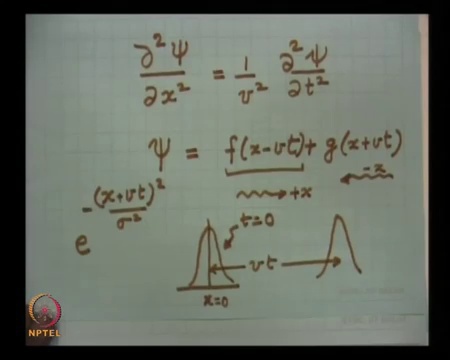 ∂²Ψ/∂x² = 1/v² ∂²Ψ/∂t²
Ψ = f(x-vt) + g(x+vt)
→ +x
← -x
e^(-(x+vt)²/σ²)
t=0
vt
x=0
NPTEL